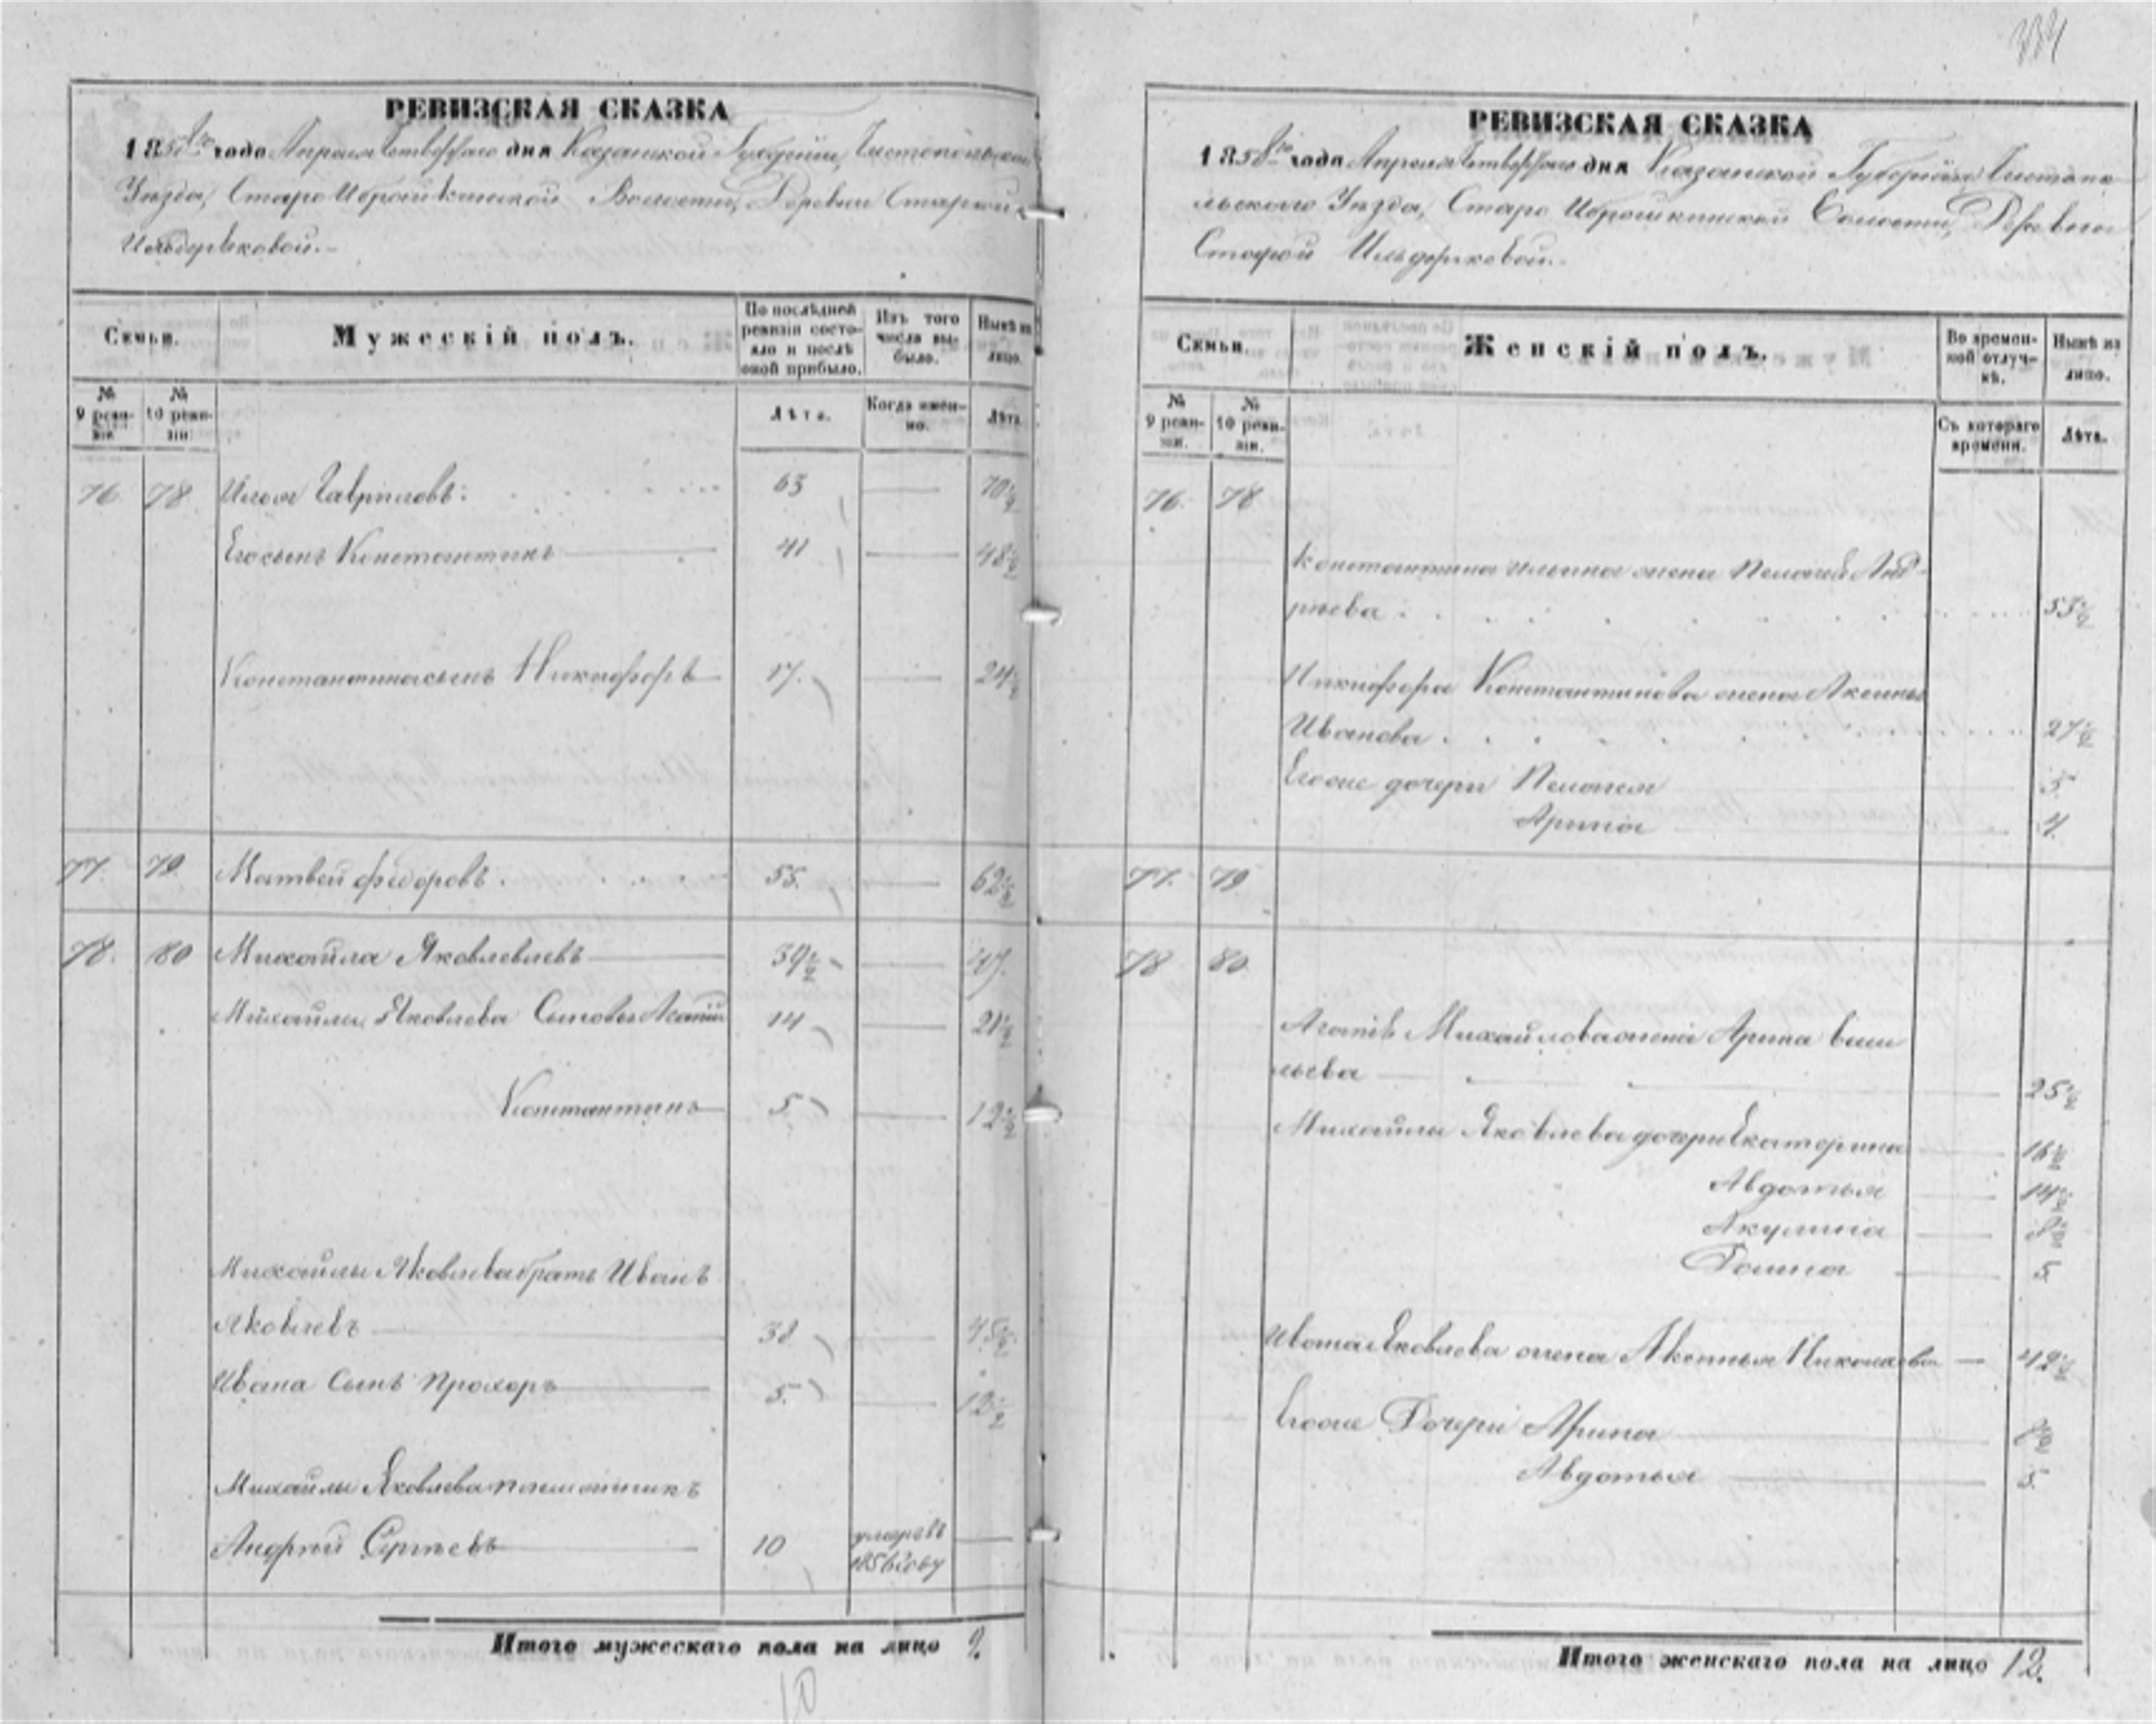 334
РЕВИЗСКАЯ СКАЗКА
1858го года Апреля Четвертаго дня Казанской Губернии, Чистопольскаго
Уѣзда, Старо Ибройкинской Волости, Деревни Старой
Ильдеряковой.
Семьи.
Мужескій полъ.
По послѣдней ревизіи состояло и послѣ оной прибыло.
Изъ того числа выбыло.
Нынѣ на лицо.
№ 9 ревизіи.
№ 10 ревизіи.
Лѣта.
Когда именно.
Лѣта.
76. 78 Илья Гавриловъ. 63 70½
Его сынъ Константинъ 41 48½
Константина сынъ Никифоръ 17. 24½
77. 79 Матвей Федоровъ. 55. 62½
78. 80 Михайла Яковлевъ 39½ 47.
Михайлы Яковлева Сыновья Агапій 14 21½
Константинъ 5. 12½
Михайлы Яковлева братъ Иванъ
Яковлевъ 38 45½
Ивана Сынъ Прохоръ 5. 12½
Михайлы Яковлева племянникъ
Андрей Сергѣевъ 10 умеръ въ
1856 году
Итого мужескаго пола на лицо 9.
10
РЕВИЗСКАЯ СКАЗКА
1858го года Апреля Четвертаго дня Казанской Губерніи Чистопо-
льскаго Уѣзда, Старо Иброшкинской Волости, Деревни
Старой Ильдеряковой.
Семьи.
Женскій полъ.
Во временной отлучкѣ.
Нынѣ на лицо.
№ 9 ревизіи.
№ 10 ревизіи.
Съ котораго времени.
Лѣта.
76. 78
Константина Ильина жена Пелагея Анд-
рѣева 53½
Никифора Константинова жена Аксинья
Иванова 27½
Его же дочери Пелагея 5.
Арина 4.
77. 79
78 80
Агапія Михайлова жена Арина Васи
льева 25½
Михайлы Яковлева дочери Екатерина 16½
Авдотья 14½
Акулина 8½
5.
Ивана Яковлева жена Аксинья Николаева 42½
Его же Дочери Арина 8½
Авдотья 5.
Итого женскаго пола на лицо 12.